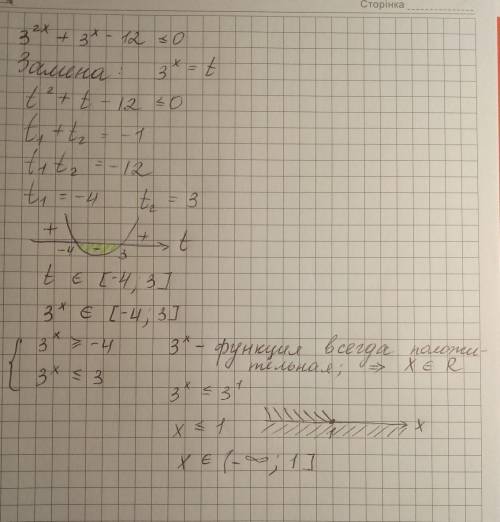 Сторінка
3^2x + 3^x - 12 ≤ 0
Замена: 3^x = t
t^2 + t - 12 ≤ 0
t1 + t2 = -1
t1 t2 = -12
t1 = -4 t2 = 3
+ -4 - 3 + t
t ∈ [-4; 3]
3^x ∈ [-4; 3]
3^x ≥ -4 3^x - функция всегда положи-
тельная; ⇒ x ∈ R
3^x ≤ 3
3^x ≤ 3^1
x ≤ 1 1 x
x ∈ (-∞; 1]